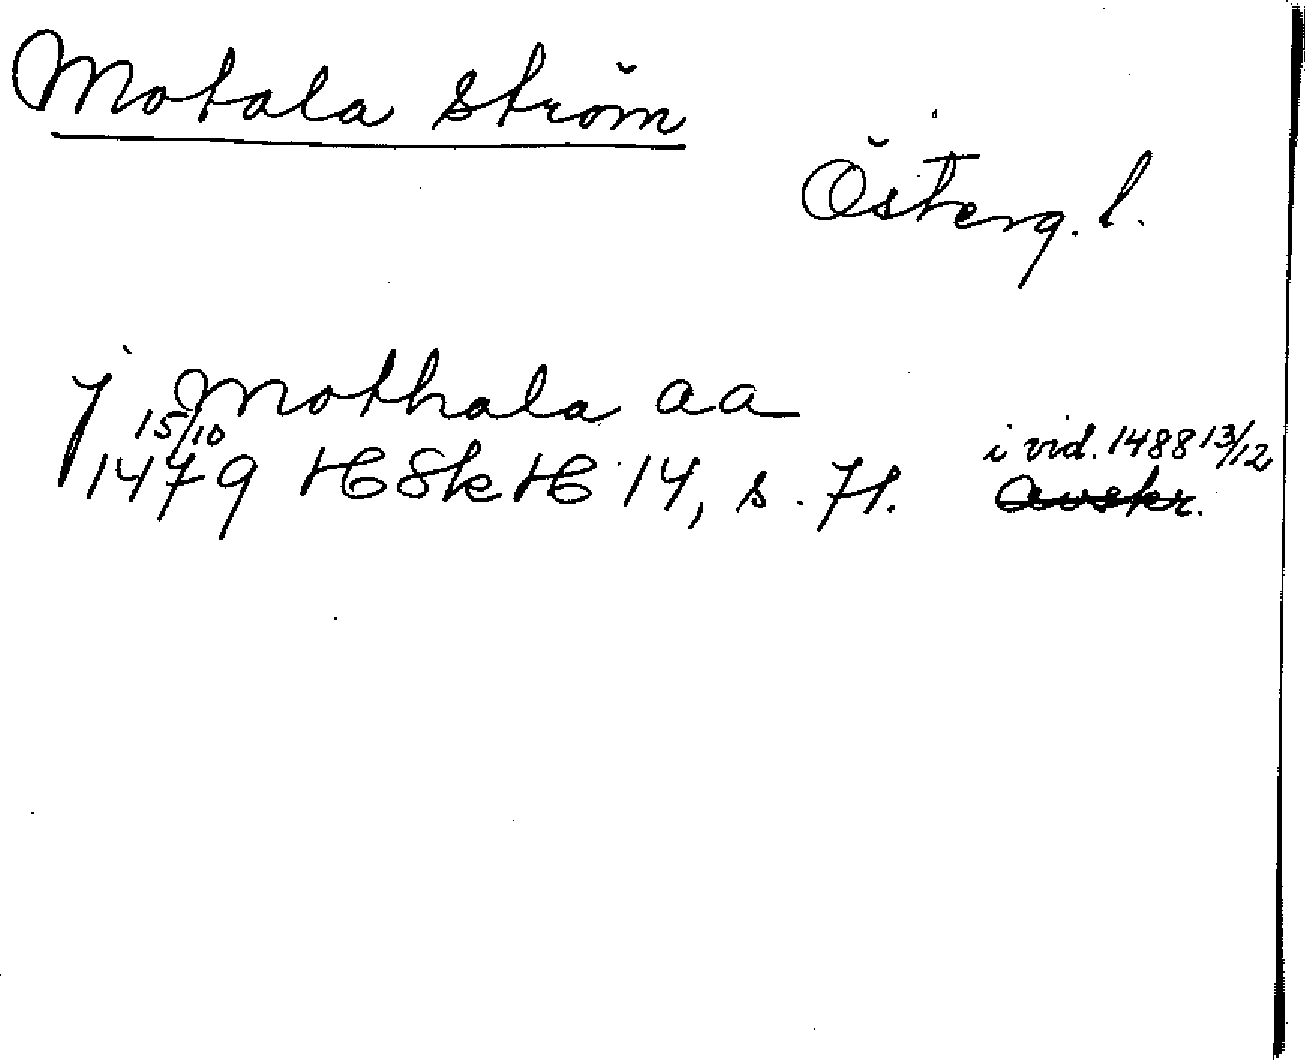 Motala ström
Österg. l.
j Mothala aa
15/10
1479 HSkH 14, s. 71. i vid. 1488 13/12
avskr.